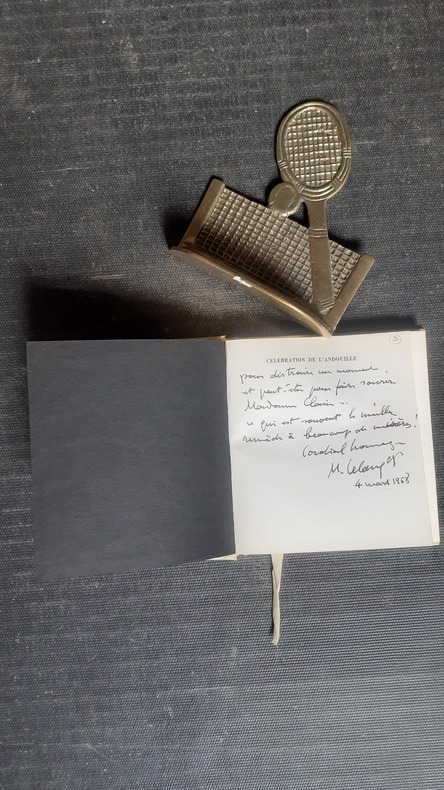 CELEBRATION DE L'ANDOUILLE
pour distraire un moment,
et peut-être pour faire sourire
Madame
ce qui est souvent le meilleur
remède à beaucoup de
Cordial hommage
M.
4 mars 1968